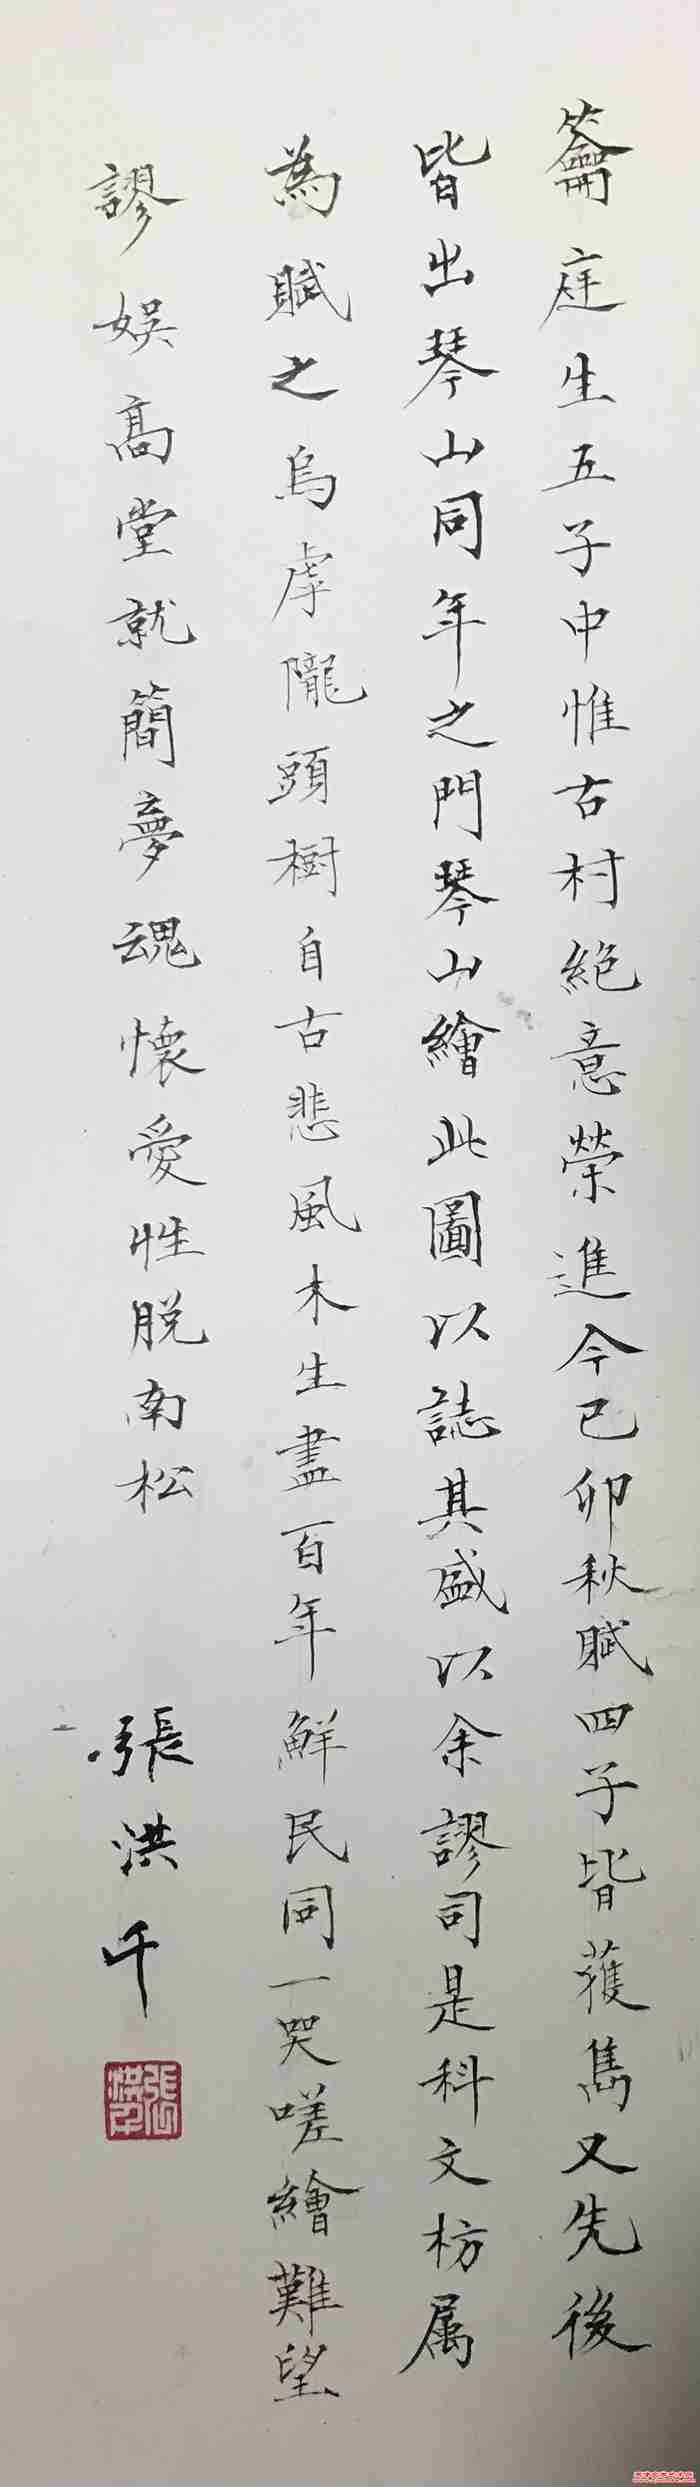 籥庭生五子中惟古村絶意榮進今已卯秋賦四子皆獲雋又先後
皆出琴山同年之門琴山繪此圖以誌其盛以余謬司是科文枋属
為賦之烏虖隴頭樹自古悲風木生盡百年鮮民同一哭嗟繪難望
謬娛高堂就簡夢魂懷愛性脱南松
張洪千